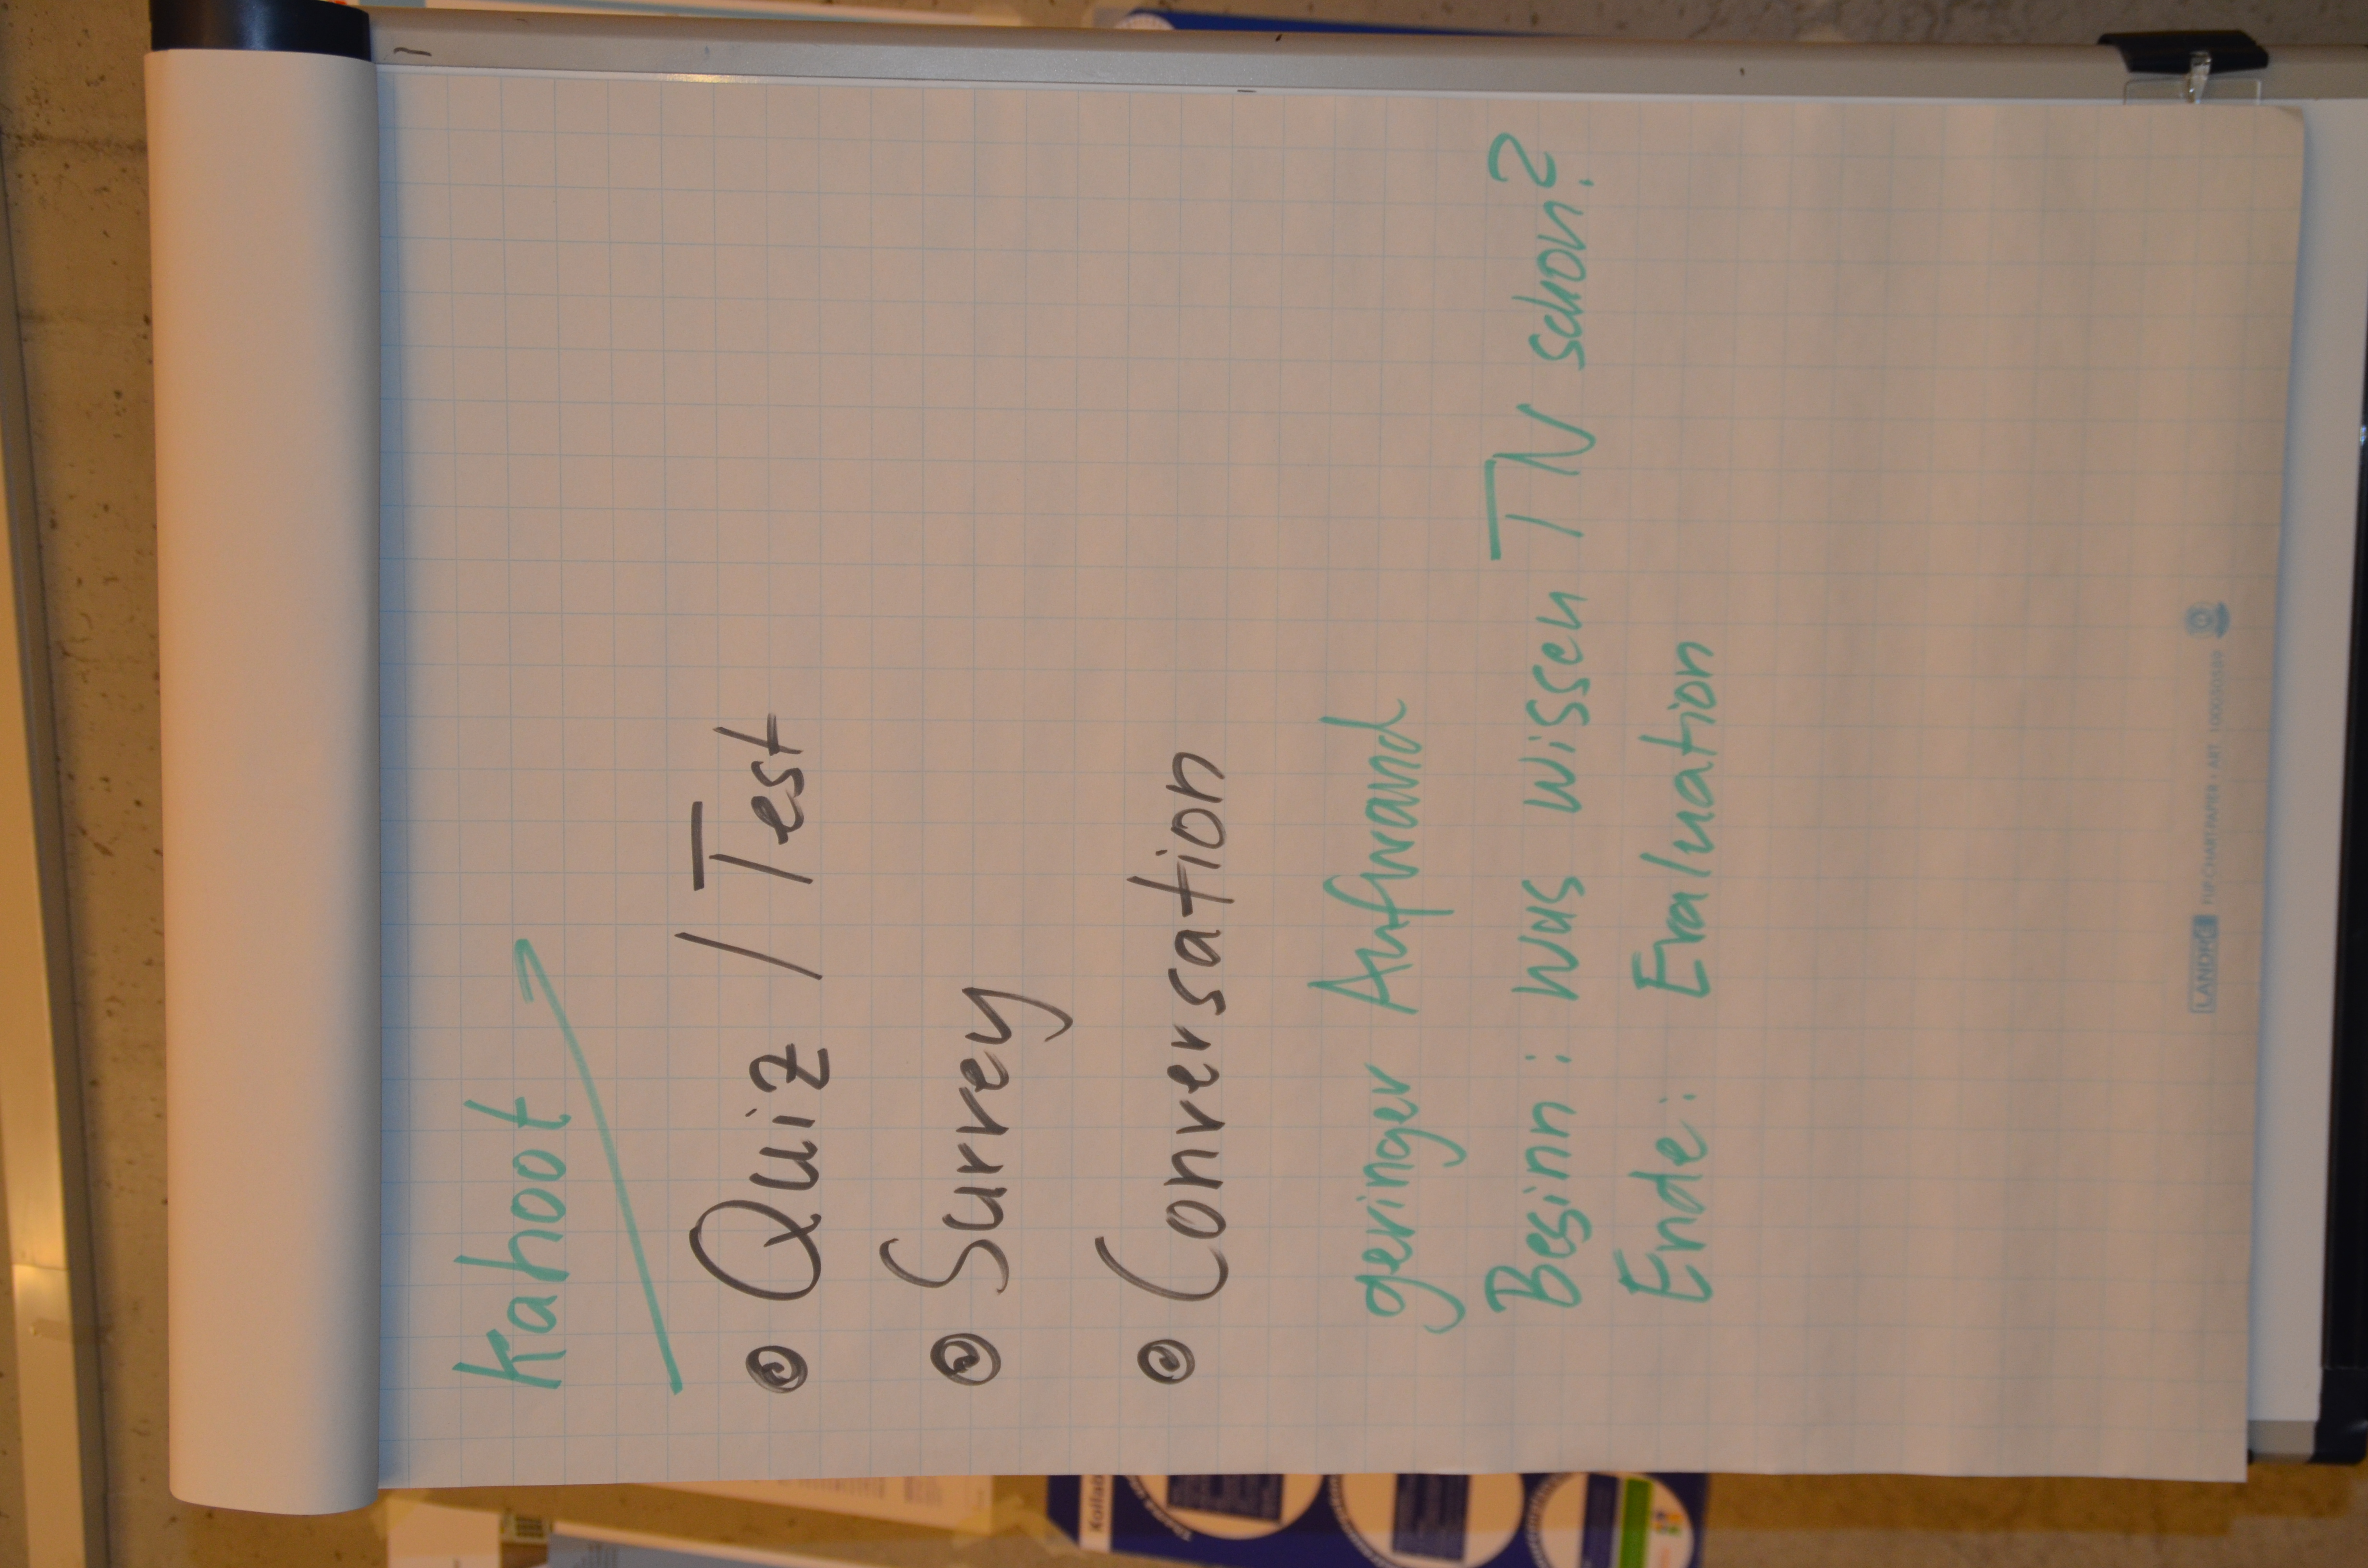 Kahoot
Quiz / Test
Survey
Conversation
geringer Aufwand
Beginn: Was wissen TN schon?
Ende: Evaluation
LANDRÉ FLIPCHARTPAPIER • ART. 100050589
Kollab